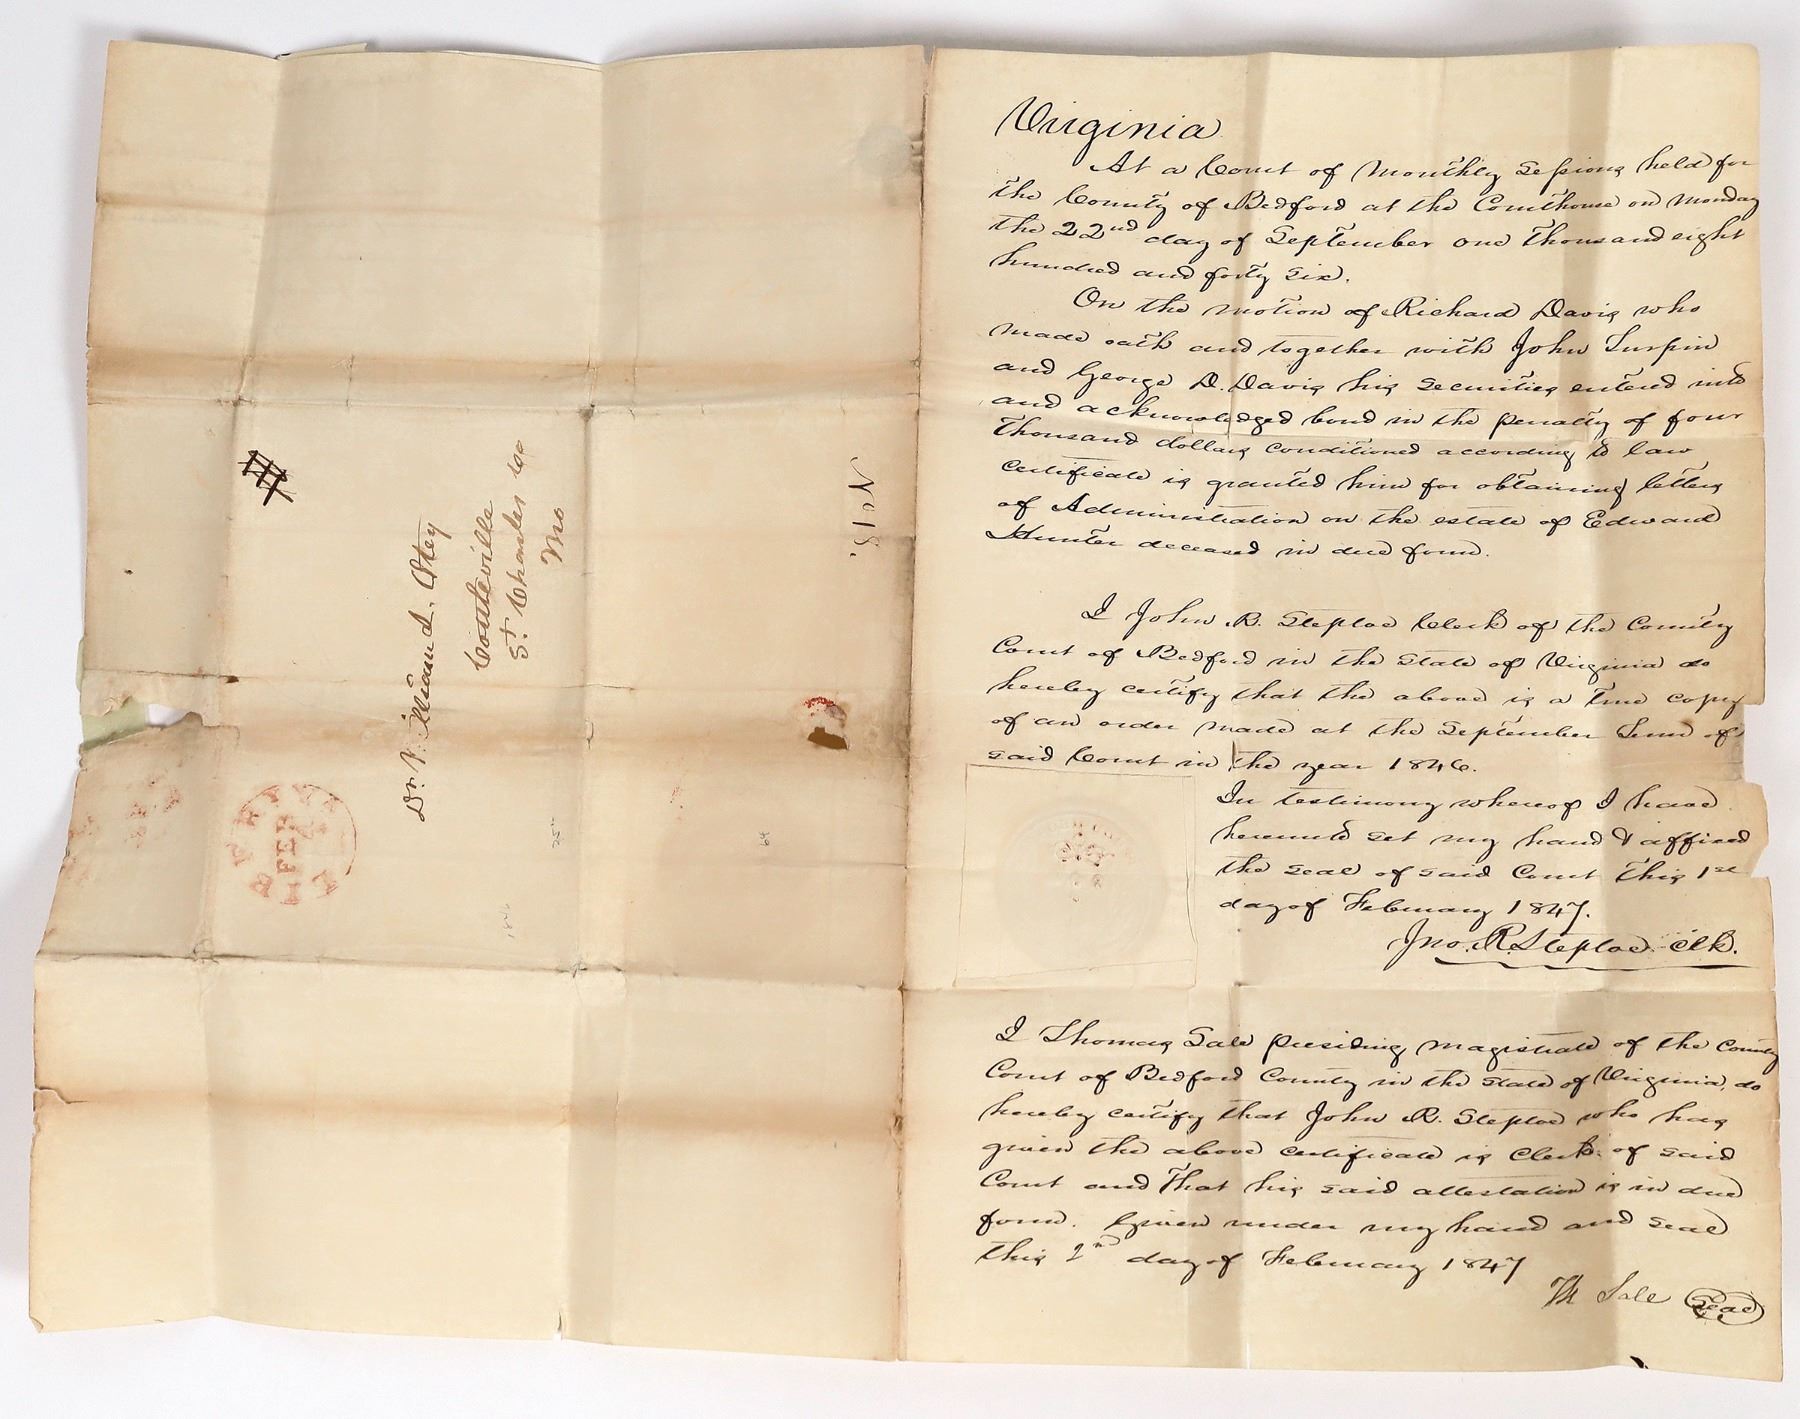 Virginia
At a Court of Monthly Sessions held for
the County of Bedford at the Courthouse on Monday
the 22nd day of September one Thousand eight
hundred and forty six.
On the motion of Richard Davis who
made oath and together with John Turpin
and George D. Davis his securities entered into
and acknowledged bond in the penalty of four
Thousand dollars conditioned according to law
certificate is granted him for obtaining letters
of Administration on the estate of Edward
Hunter deceased in due form.
I John R. Steptoe Clerk of the County
Court of Bedford in the State of Virginia do
hereby certify that the above is a true copy
of an order made at the September Term of
said Court in the year 1846.
In testimony whereof I have
hereunto set my hand & affixed
the seal of said Court this 1st
day of February 1847.
Jno. R. Steptoe Clk.
I Thomas Sale presiding magistrate of the County
Court of Bedford County in the State of Virginia, do
hereby certify that John R. Steptoe who has
given the above certificate is Clerk of said
Court and that his said attestation is in due
form. Given under my hand and seal
this day of February 1847
Th Sale Seal
Dr. William L. Otey
Cottleville
St. Charles Co
Mo
No 18.
FEB